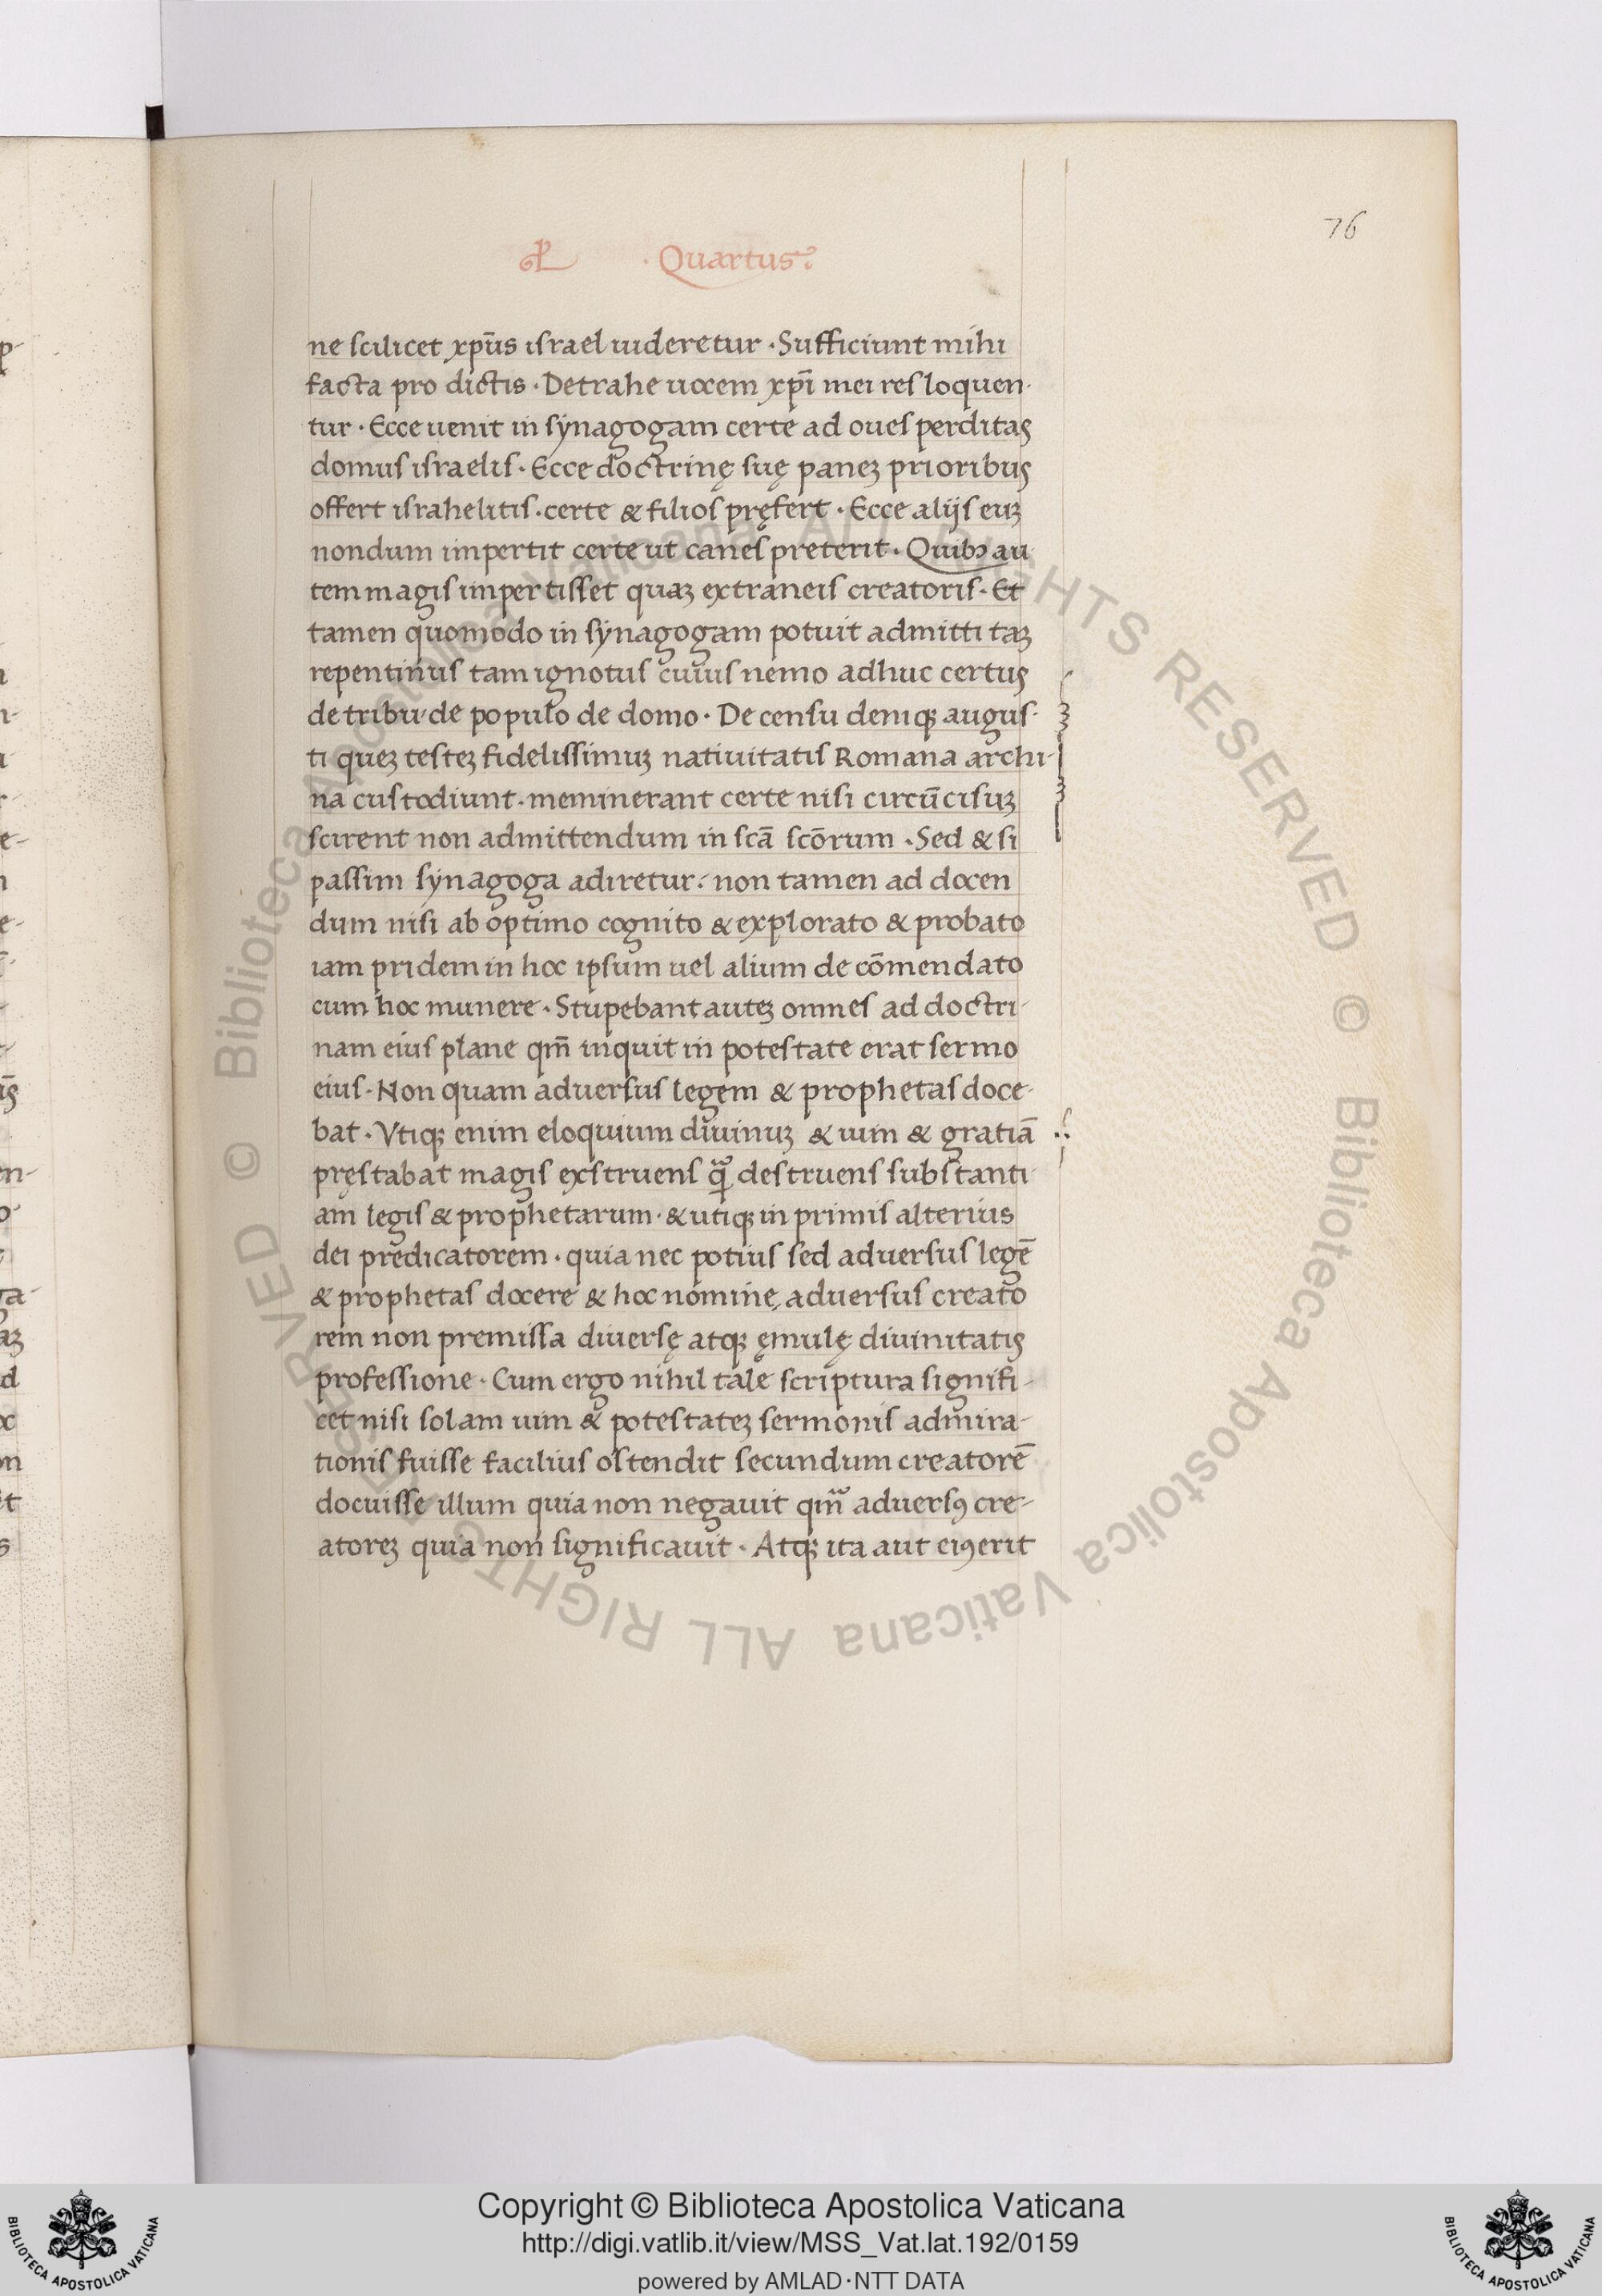 76
· Quartus ·
ne scilicet xp̄us israel uideretur · Sufficiunt mihi
facta pro dictis · Detrahe uocem xp̄i mei res loquen-
tur · Ecce uenit in synagogam certe ad oues perditas
domus israelis · Ecce doctrinę suę paneꝫ prioribus
offert israhelitis · certe & filios pręfert · Ecce alijs euꝫ
nondum impertit certe ut canes preterit · Quibꝫ au
tem magis impertisset quaꝫ extraneis creatoris · Et
tamen quomodo in synagogam potuit admitti taꝫ
repentinus tam ignotus cuius nemo adhuc certus
de tribu de populo de domo · De censu deniqꝫ augus-
ti queꝫ testeꝫ fidelissimuꝫ natiuitatis Romana archi-
na custodiunt · meminerant certe nisi circūcisuꝫ
scirent non admittendum in scā scōrum · Sed & si
passim synagoga adiretur · non tamen ad docen
dum nisi ab optimo cognito & explorato & probato
iam pridem in hoc ipsum uel alium de cōmendato
cum hoc munere · Stupebant auteꝫ omnes ad doctri-
nam eius plane qm̄ inquit in potestate erat sermo
eius · Non quam aduersus legem & prophetas doce-
bat · Vtiqꝫ enim eloquium diuinuꝫ & uim & gratiā
pręstabat magis exstruens q̄ destruens substanti-
am legis & prophetarum · & utiqꝫ in primis alterius
dei predicatorem · quia nec potius sed aduersus legē
& prophetas docere & hoc nomine, aduersus creato
rem non premissa diuersę atqꝫ ęmulę diuinitatis
professione · Cum ergo nihil tale scriptura signifi-
cet nisi solam uim & potestateꝫ sermonis admira-
tionis fuisse facilius ostendit secundum creatorē
docuisse illum quia non negauit qm̄ aduersꝯ cre-
atoreꝫ quia non significauit · Atqꝫ ita aut eiꝯ erit
© Biblioteca Apostolica Vaticana ALL RIGHTS RESERVED © Biblioteca Apostolica Vaticana ALL RIGHTS RESERVED
Copyright © Biblioteca Apostolica Vaticana
http://digi.vatlib.it/view/MSS_Vat.lat.192/0159
powered by AMLAD·NTT DATA
BIBLIOTECA APOSTOLICA VATICANA
BIBLIOTECA APOSTOLICA VATICANA